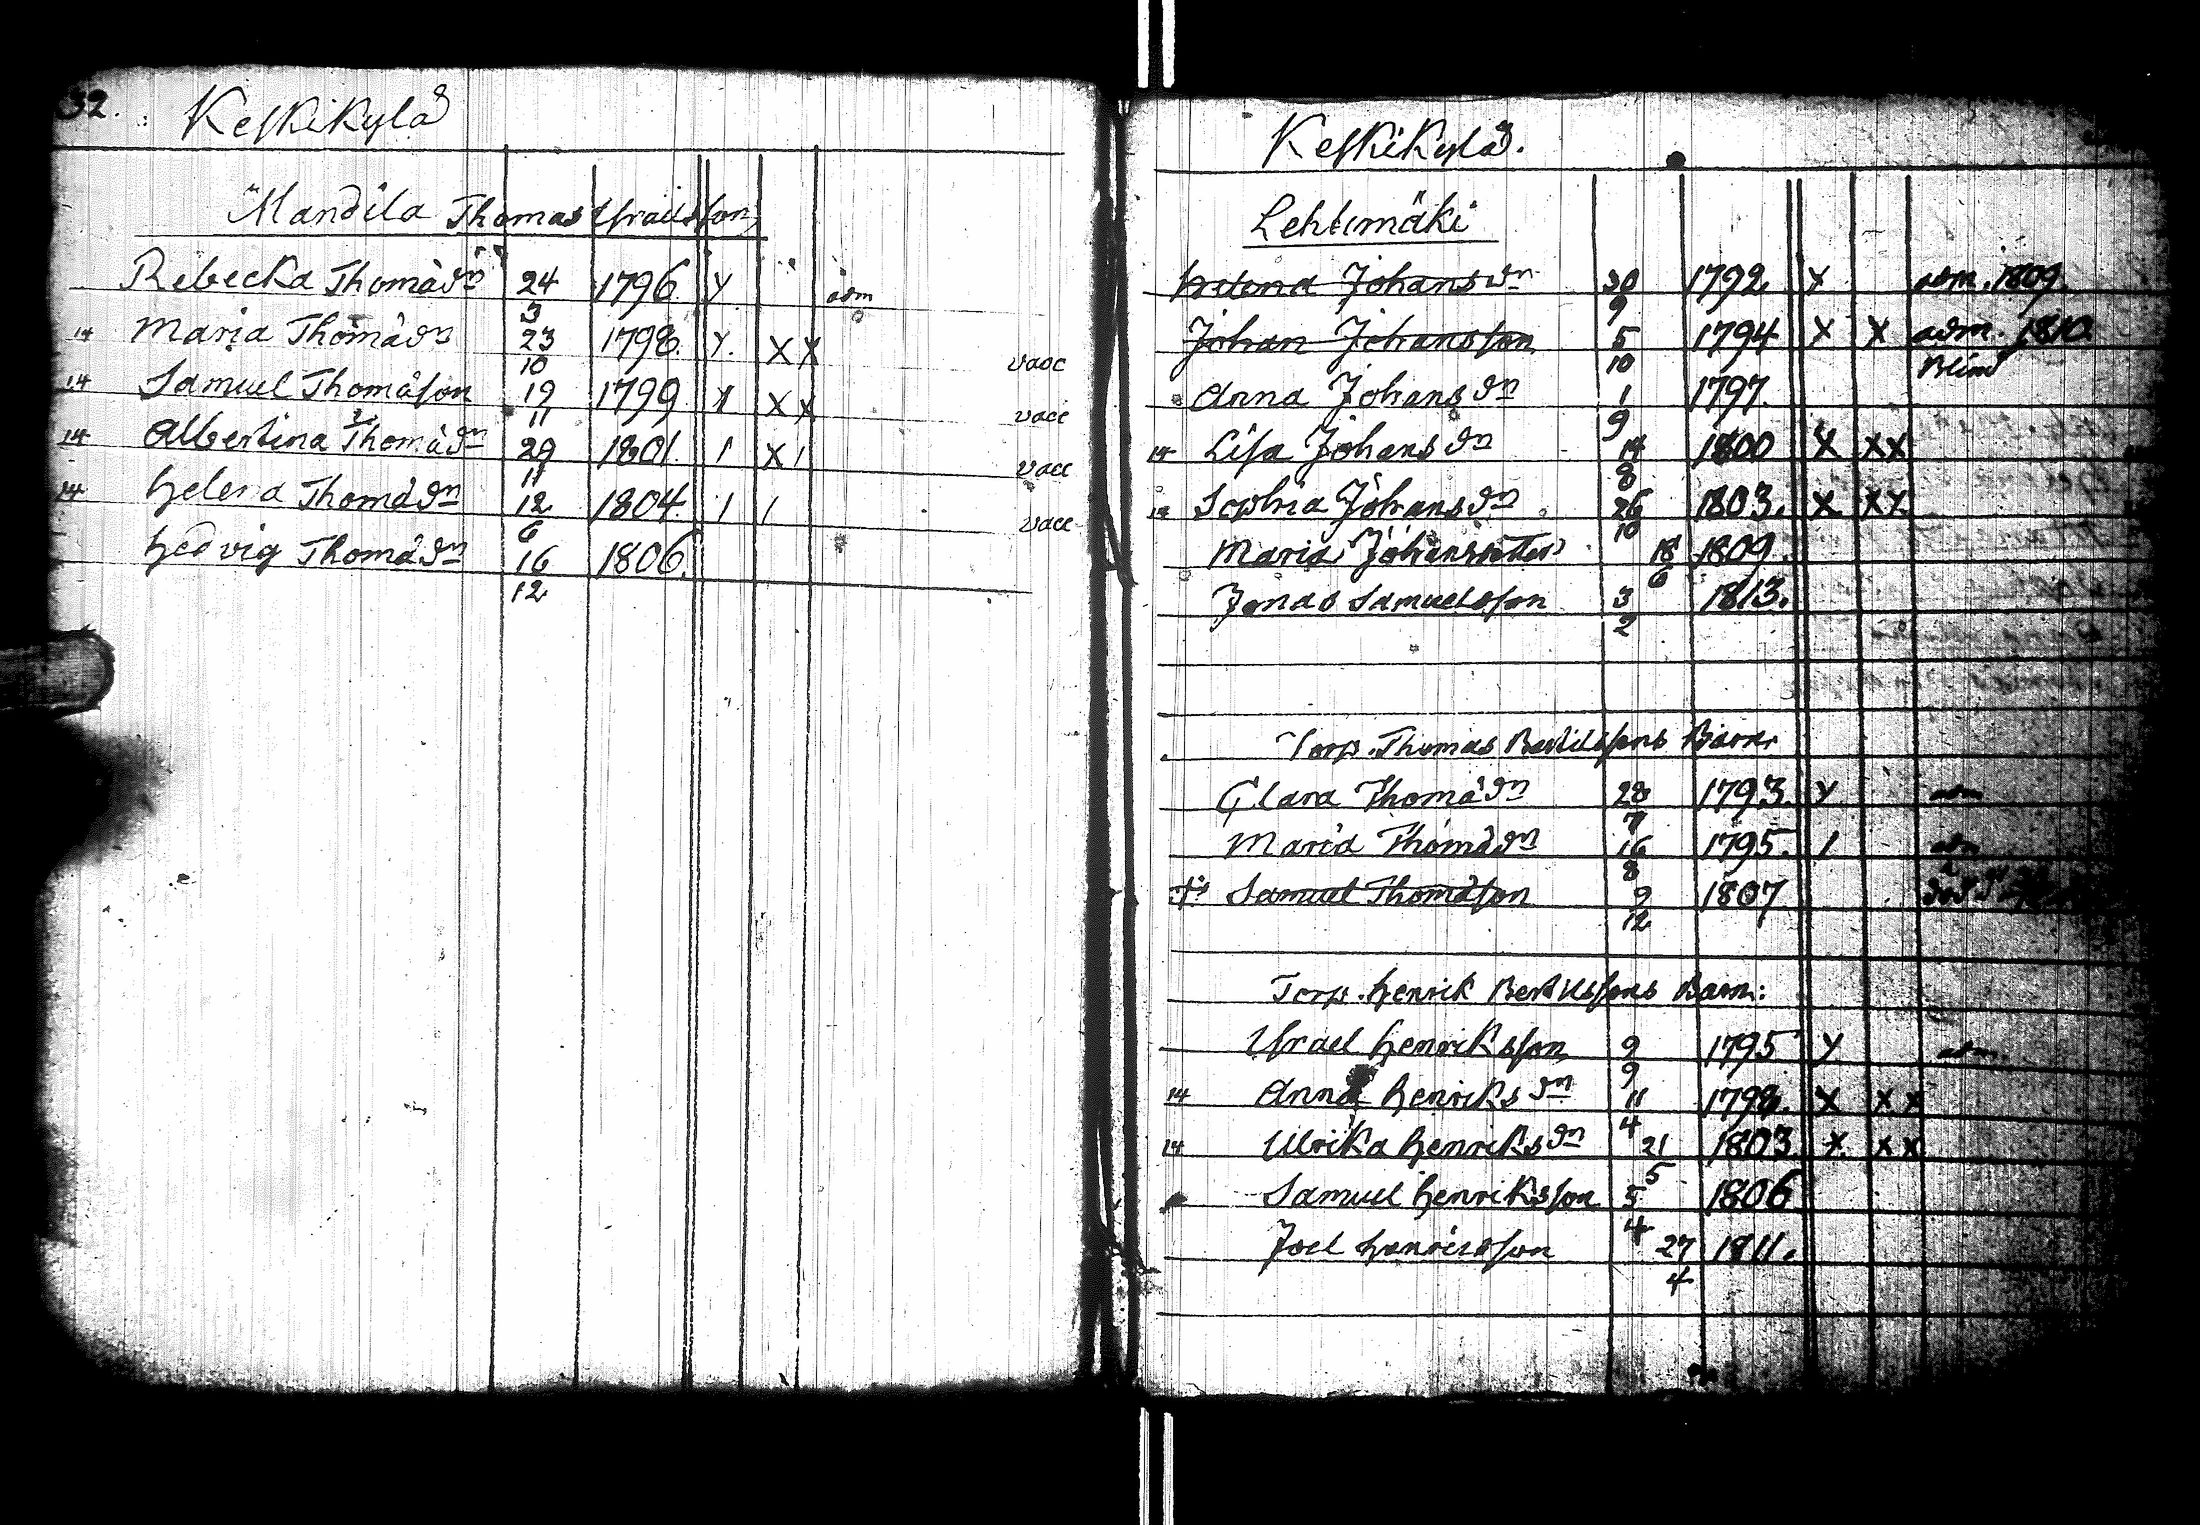 32. Keskikylå
Mandila Thomas Israelsson
Rebecka Thomædn 24/3 1796. Y adm
14 Maria Thomædn 23/10 1798. Y. X X vacc
14 Samuel Thomæson 19/11 1799 X X X vacc
14 Albertina Thomædn 29/11 1801. 1 X 1 vacc
14 Helena Thomædn 12/6 1804. 1 1 vacc
Hedvig Thomædn 16/12 1806.
Keskikylå.
Lehtimäki
Helena Johansdn 30/9 1792. Y adm. 1809.
Johan Johansson 5/10 1794 X X adm. 1810.
Blind
Anna Johansdn 1/9 1797.
14 Lisa Johansdn 14/8 1800 X X X
Sophia Johansdn 26/10 1803. X X X
Maria Johansdotter 18/6 1809.
Jonas Samuelsson 3/2 1813.
Torp. Thomas Bertilssons Barn.
Clara Thomædn 28/7 1793. Y adm
Maria Thomædn 16/8 1795. 1 adm
Samuel Thomæson 9/12 1807 död
Torp. Henrik Bertilssons Barn:
Israel Henriksson 9/9 1795 Y adm.
14 Anna Henriksdn 11/4 1798. X X X
14 Ulrika Henriksdn 21/5 1803. X X X
Samuel Henriksson 5/4 1806
Joel Henricsson 27/4 1811.